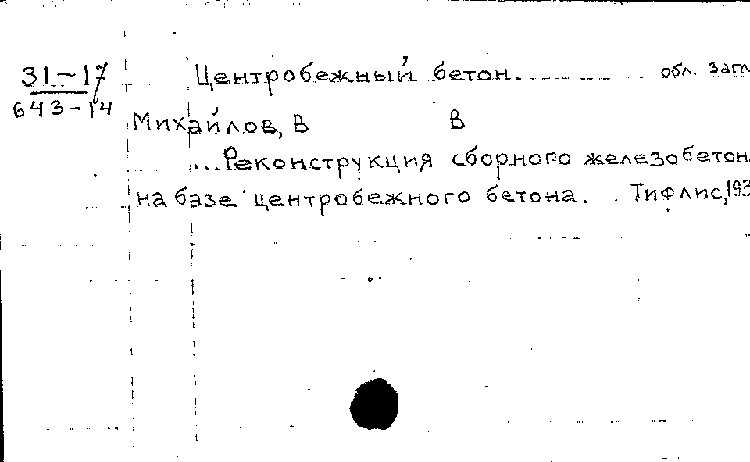 31-17
643-14
Центробежный бетон. обл. загл
Михайлов, В В
...Реконструкция сборного железобетон
на базе центробежного бетона. Тифлис, 193